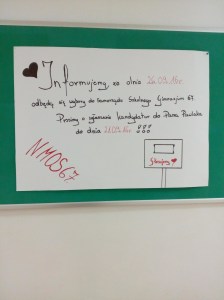 Informujemy, że dnia 26.09.16r.
odbędą się wybory do Samorządu Szkolnego Gimnazjum 67.
Prosimy o zgłaszanie kandydatur do Pana Pawlaka
do dnia 21.09.16r !!!
Głosujemy
NMOS 67